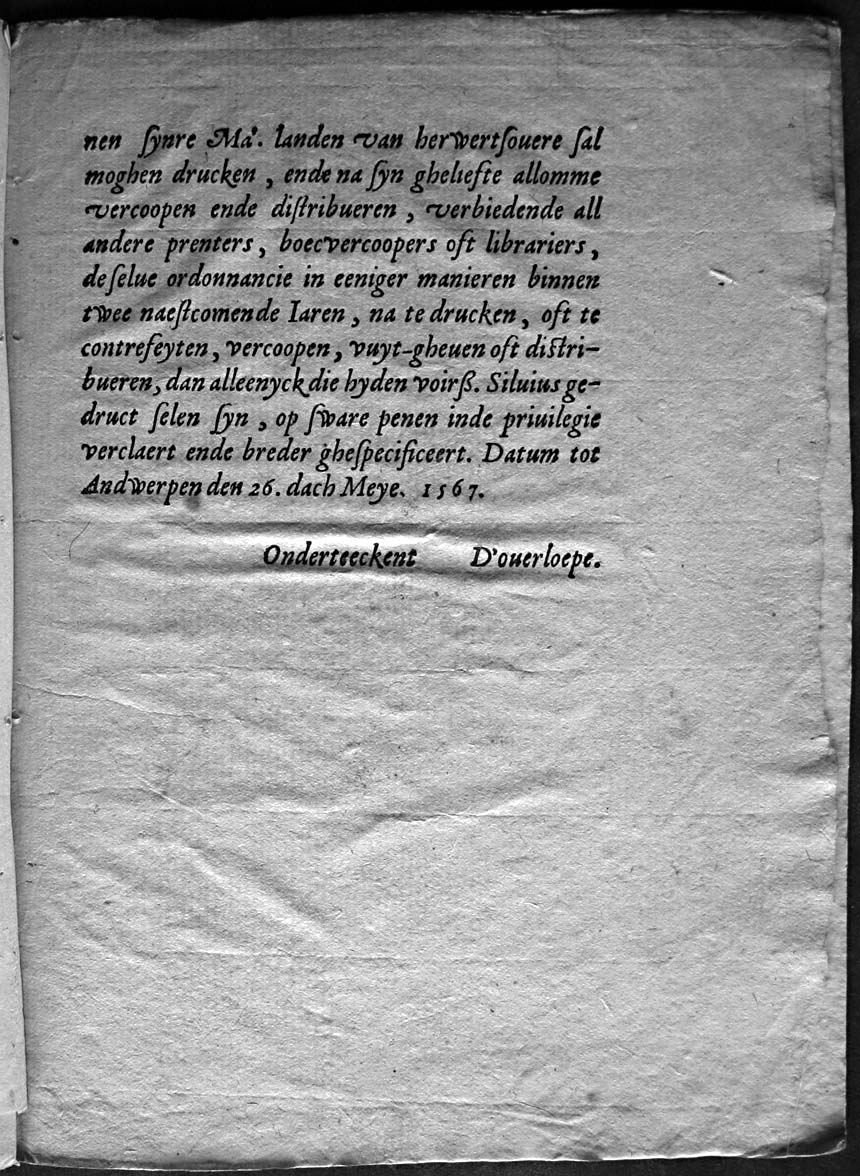 nen ſynre Maᵗ. landen van herwertſouere ſal
moghen drucken, ende na ſyn gheliefte allomme
vercoopen ende diſtribueren, verbiedende all
andere prenters, boecvercoopers oft librariers,
de ſelue ordonnancie in eeniger manieren binnen
twee naeſtcomende Iaren, na te drucken, oft te
contrefeyten, vercoopen, vuyt-gheuen oft diſtri-
bueren, dan alleenyck die byden voirß. Siluius ge-
druct ſelen ſyn, op ſware penen inde priuilegie
verclaert ende breder gheſpecificeert. Datum tot
Andwerpen den 26. dach Meye. 1567.
Onderteeckent D'ouerloepe.